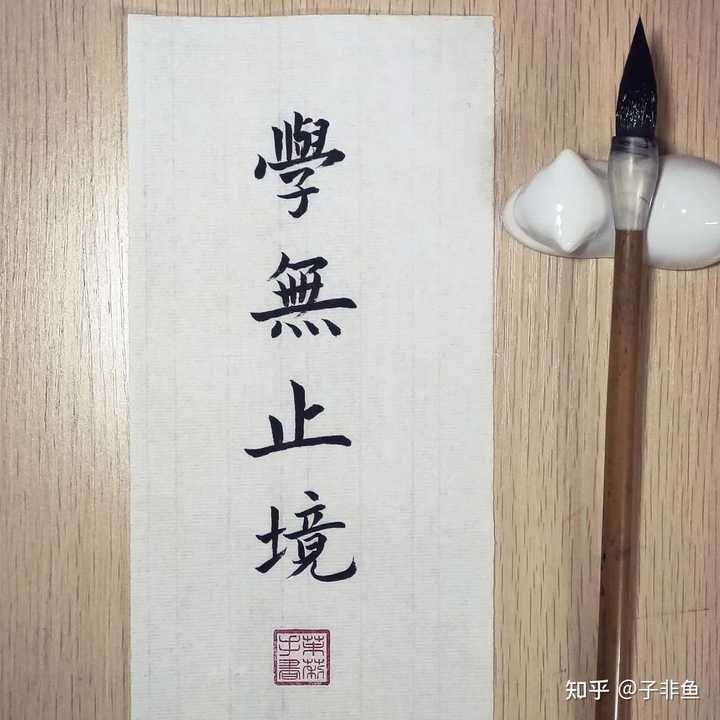 學無止境
知乎 @子非鱼